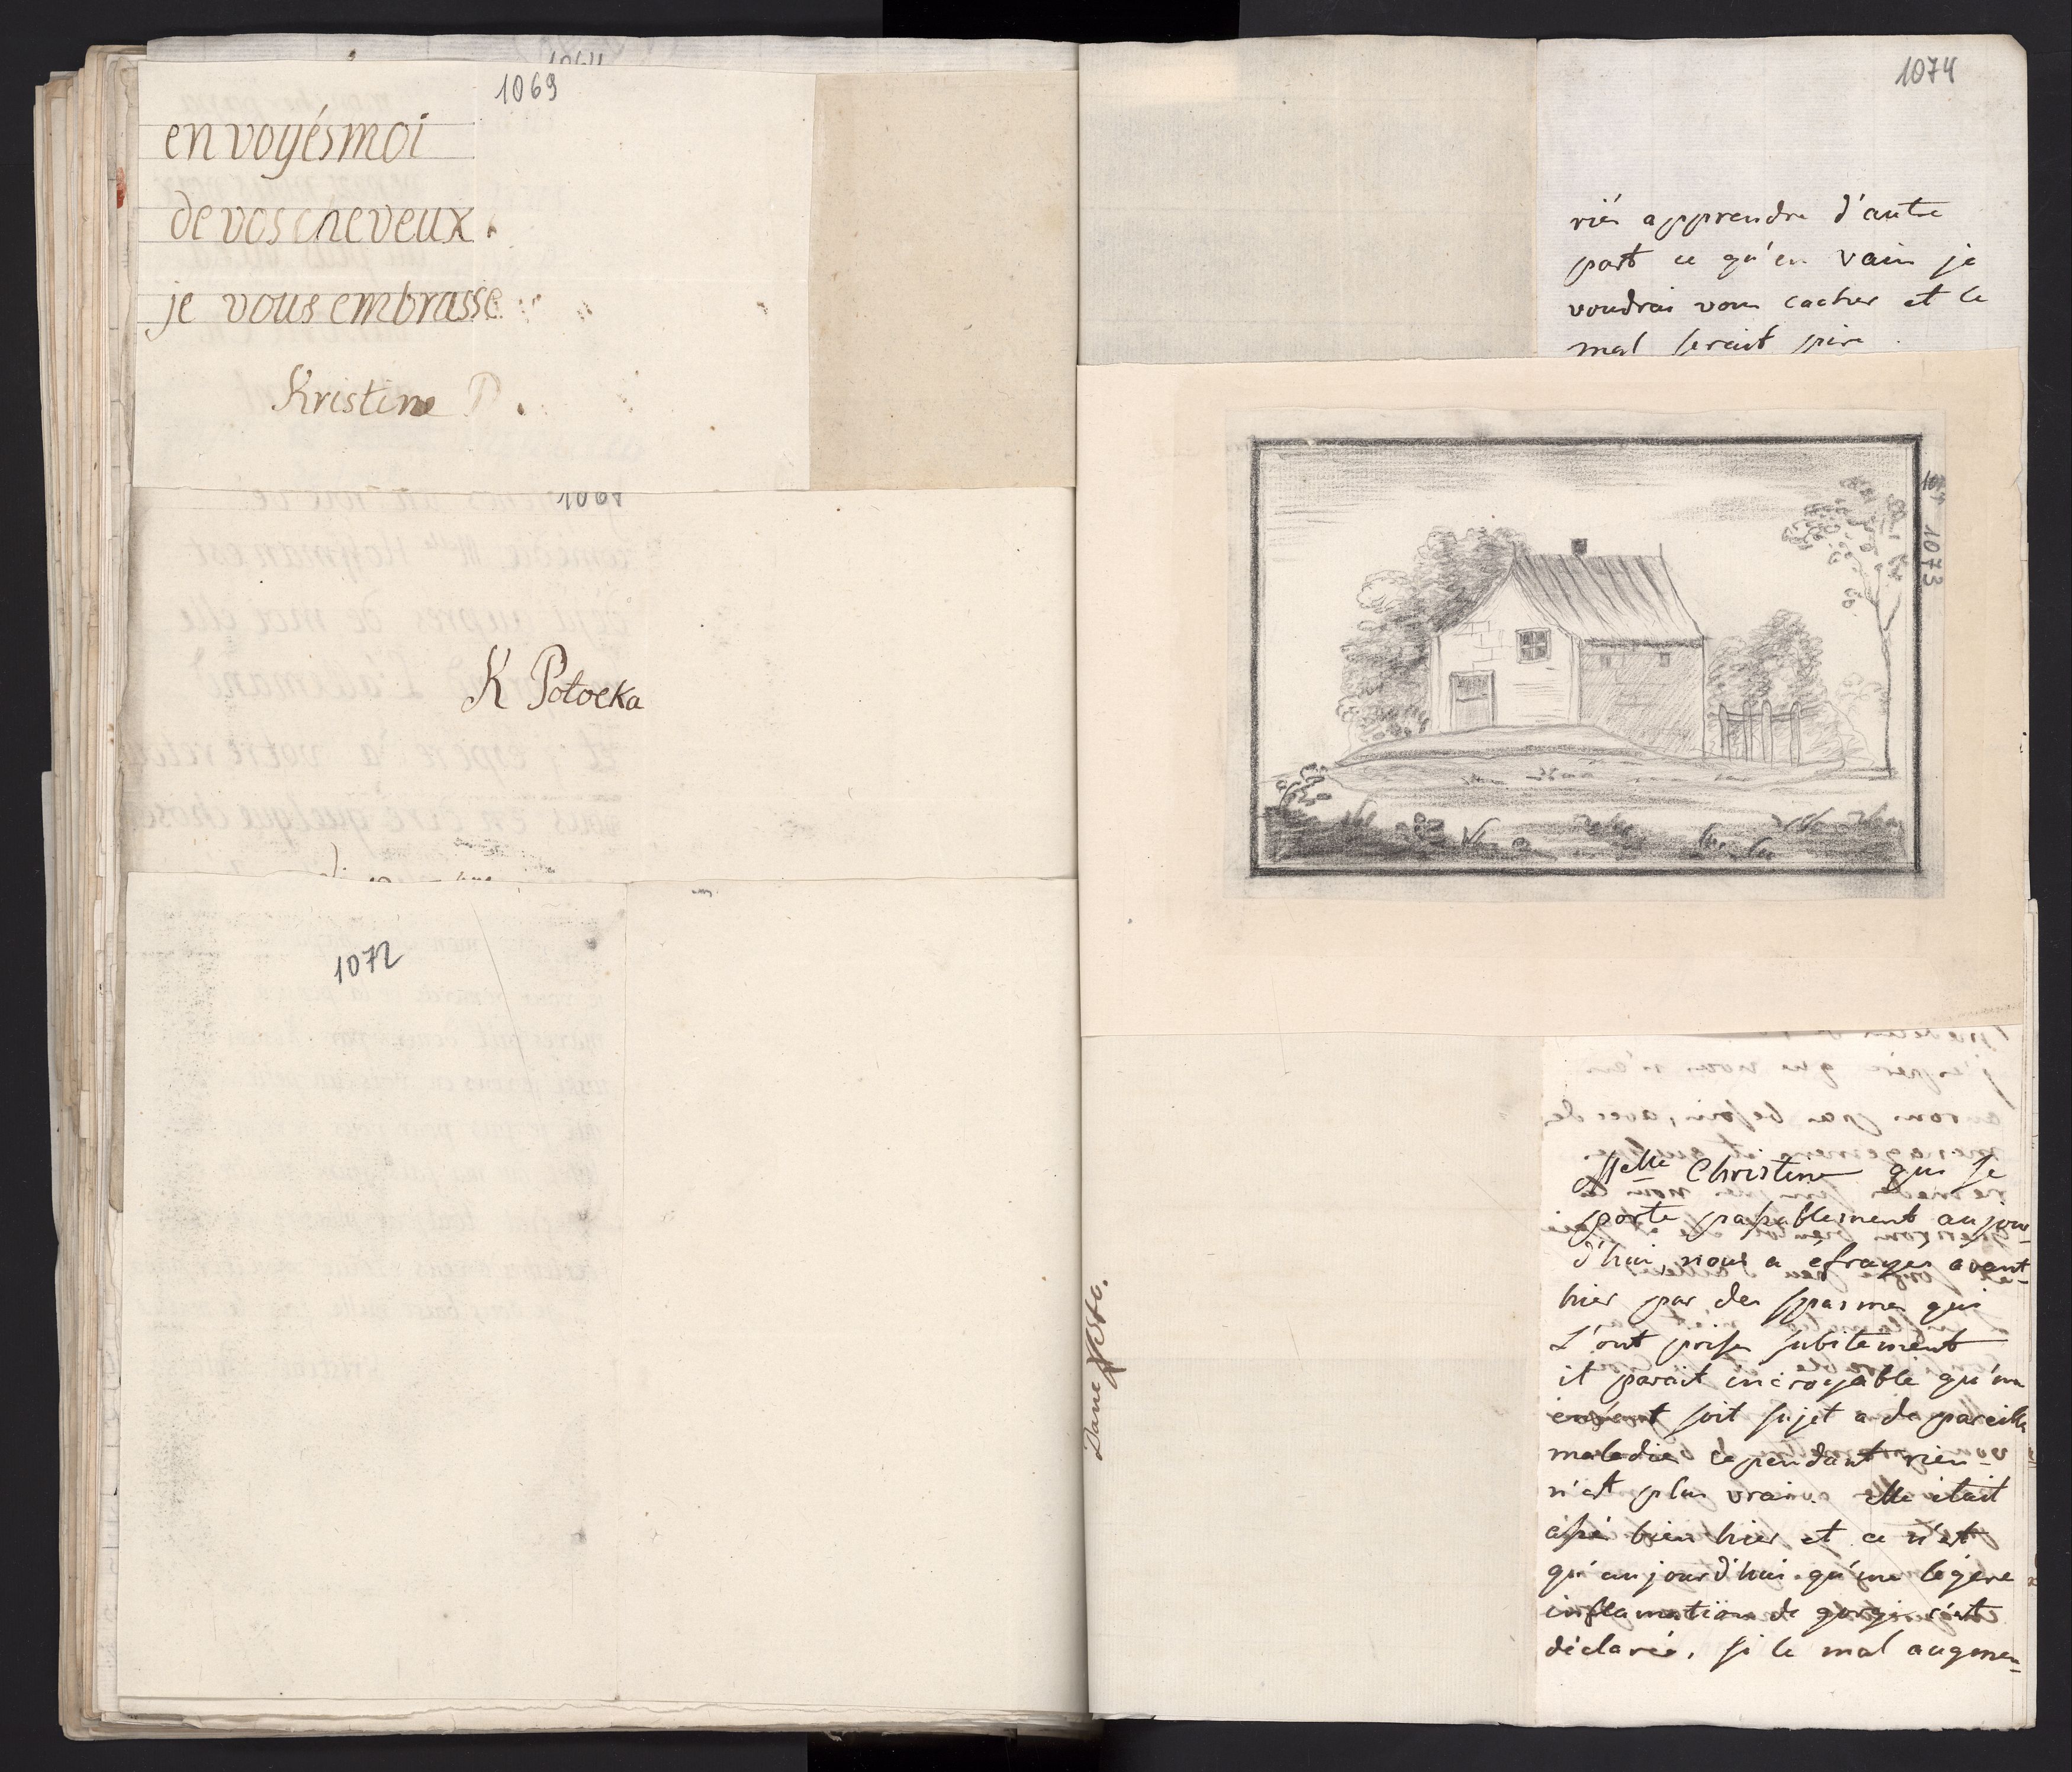 1069
envoyés moi
de vos cheveux.
je vous embrasse
Kristine P.
K Potocka
1072
1074
riés apprendre d'autre
part ce qu'en vain je
voudrai vous cacher et le
mal serait pire.
1073
Melle Christine qui se
porte passablement aujour-
d'hui, nous a éfrayes avant-
hier par des spasmes qui
l'ont prise subitement
il parait incroyable qu'un
enfant soit sujet a de pareille
maladies cependant rien
n'est plus vrai. elle était
assé bien hier et ce n'est
qu'aujourd'hui qu'une légere
inflamation de gorge s'est
déclarée, si le mal augmen-